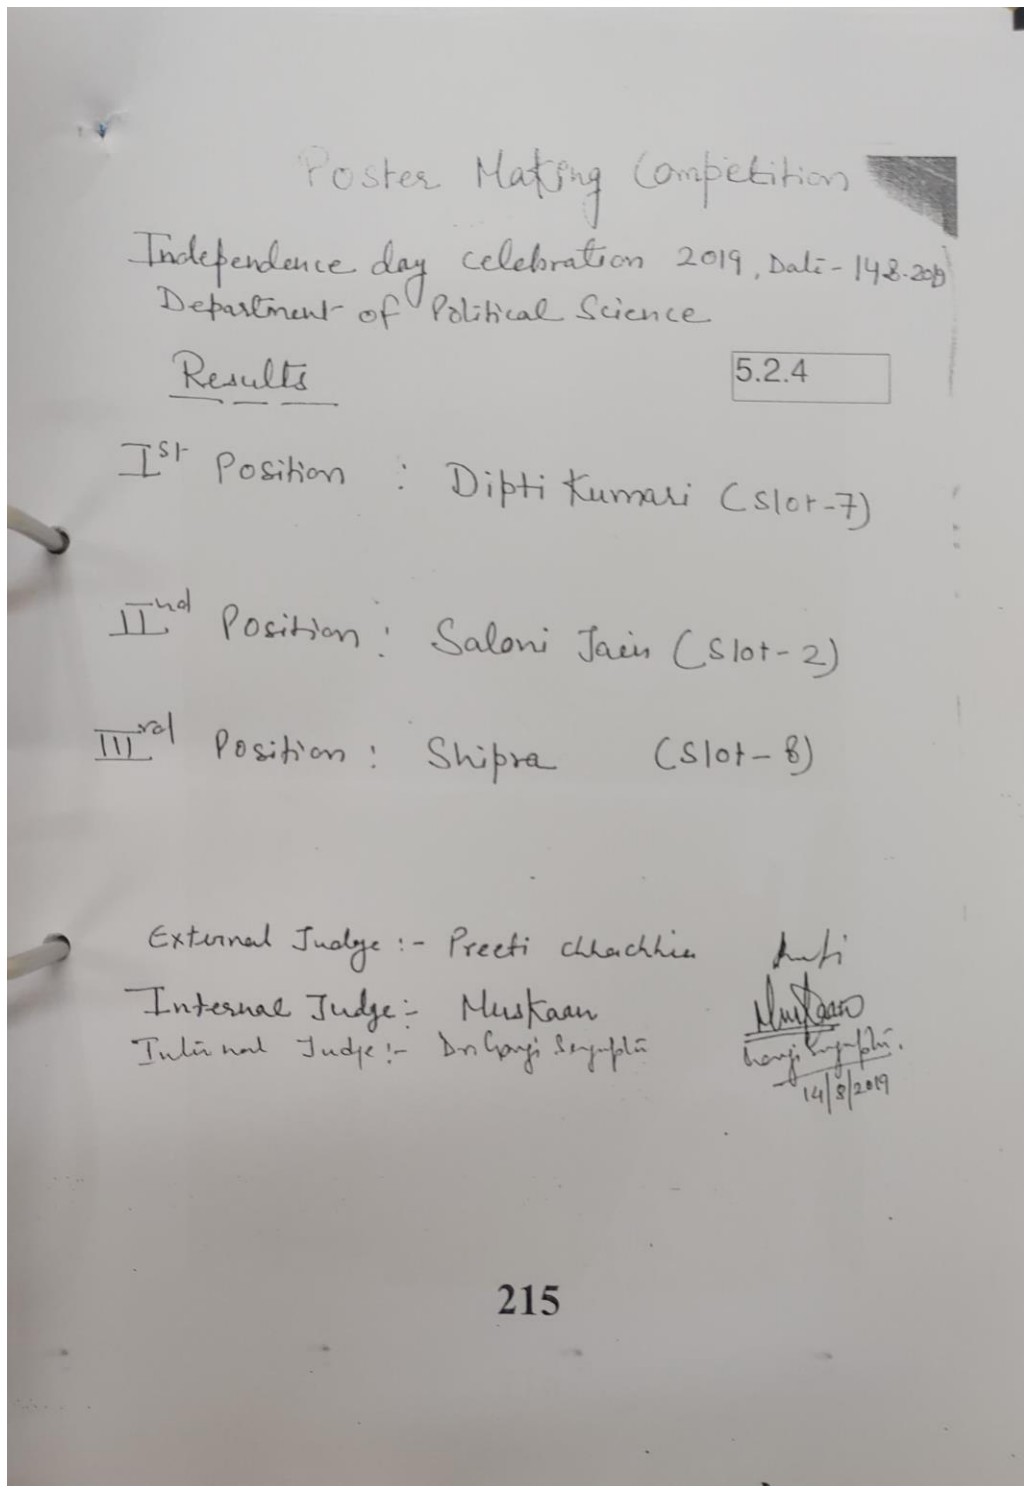 Poster Making Competition
Independence day celebration 2019, Date - 14.8.2019
Department of Political Science
Results
5.2.4
Ist Position : Dipti Kumari (Slot-7)
IInd Position : Saloni Jain (Slot-2)
IIIrd Position : Shipra (Slot-8)
External Judge :- Preeti Chhachhia
Internal Judge :- Muskaan Muskaan
Internal Judge :- Dr. Gargi Sengupta
14/8/2019
215